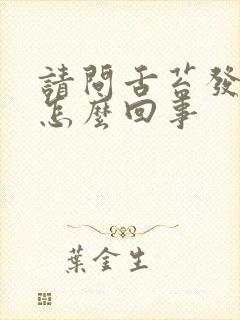 請問舌苔發
怎麼回事
葉金生